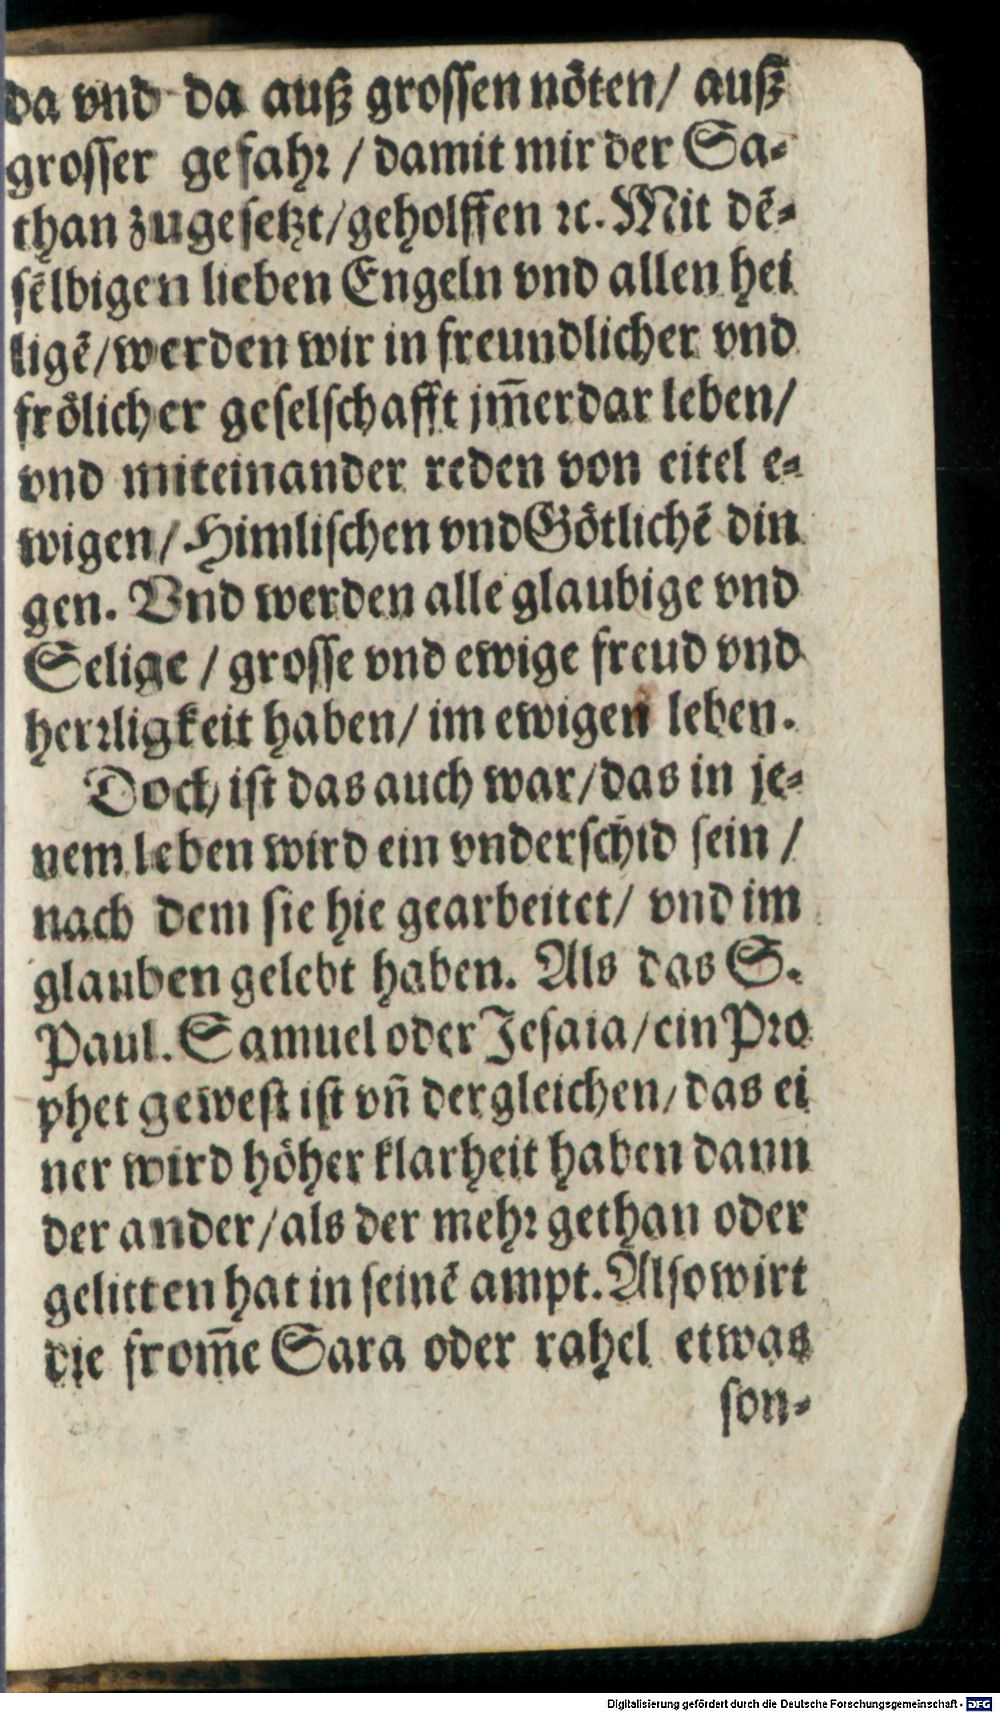 da vnd da auß grossen nöten/ auß
grosser gefahr / damit mir der Sa-
than zugesetzt/geholffen ꝛc. Mit dē-
sēlbigen lieben Engeln vnd allen hei
ligē/werden wir in freundlicher vnd
frölicher geselschafft jm̄erdar leben/
vnd miteinander reden von eitel e-
wigen/ Himlischen vnd Götlichē din
gen. Vnd werden alle glaubige vnd
Selige / grosse vnd ewige freud vnd
herrligkeit haben/ im ewigen leben.
Doch ist das auch war/das in je-
nem leben wird ein vnderschid sein /
nach dem sie hie gearbeitet/ vnd im
glauben gelebt haben. Als das S.
Paul. Samuel oder Jesaia/ein Pro
phet gewest ist vn̄ dergleichen/das ei
ner wird höher klarheit haben dann
der ander/als der mehr gethan oder
gelitten hat in seinē ampt. Also wirt
die from̄e Sara oder rahel etwas
son-
Digitalisierung gefördert durch die Deutsche Forschungsgemeinschaft - DFG